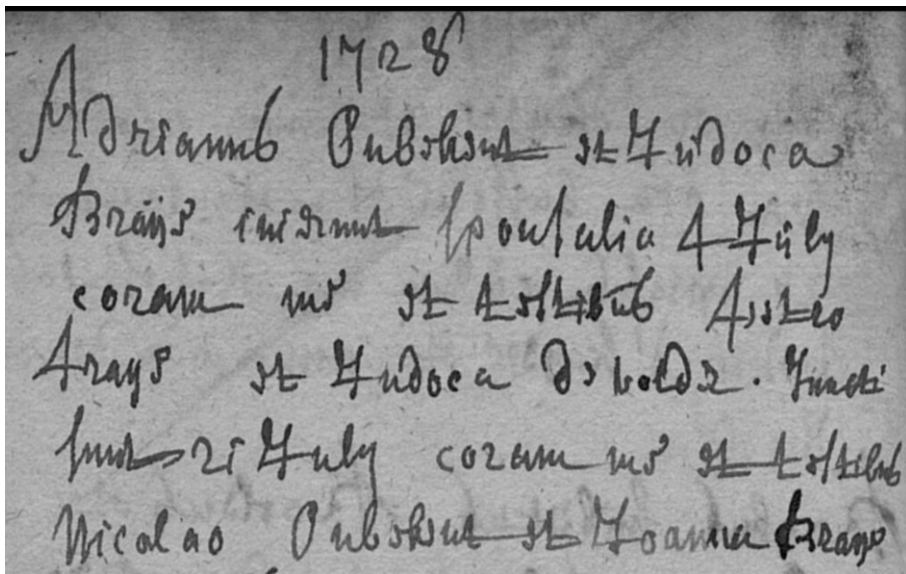 1728
Adrianus Onbekent et Judoca
Brays inierunt sponsalia 4 July
coram me et testibus Petro
Brays et Judoca de . Juncti
sunt 21 July coram me et testibus
Nicolao Onbekent et Joanna Brays